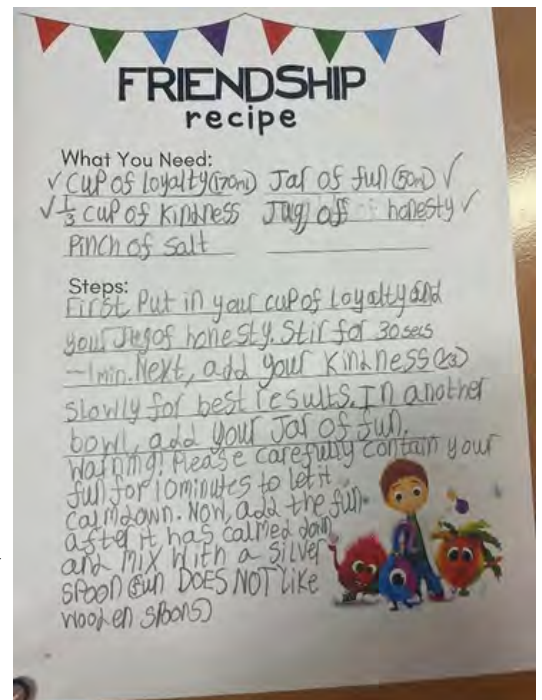 FRIENDSHIP
recipe
What You Need:
✓ Cup of Loyalty (170ml) Jar of fun (50ml) ✓
✓ 1/3 cup of Kindness Jug of honesty ✓
Pinch of salt
Steps:
First Put in your cup of Loyalty and
your Jug of honesty. Stir for 30 secs
-1 min. Next, add your Kindness (1/3)
slowly for best results. In another
bowl, add your Jar of fun.
Warning! Please carefully contain your
fun for 10 minutes to let it
calm down. Now, add the fun
after it has calmed down
and mix with a silver
spoon (fun DOES NOT like
wooden spoons)